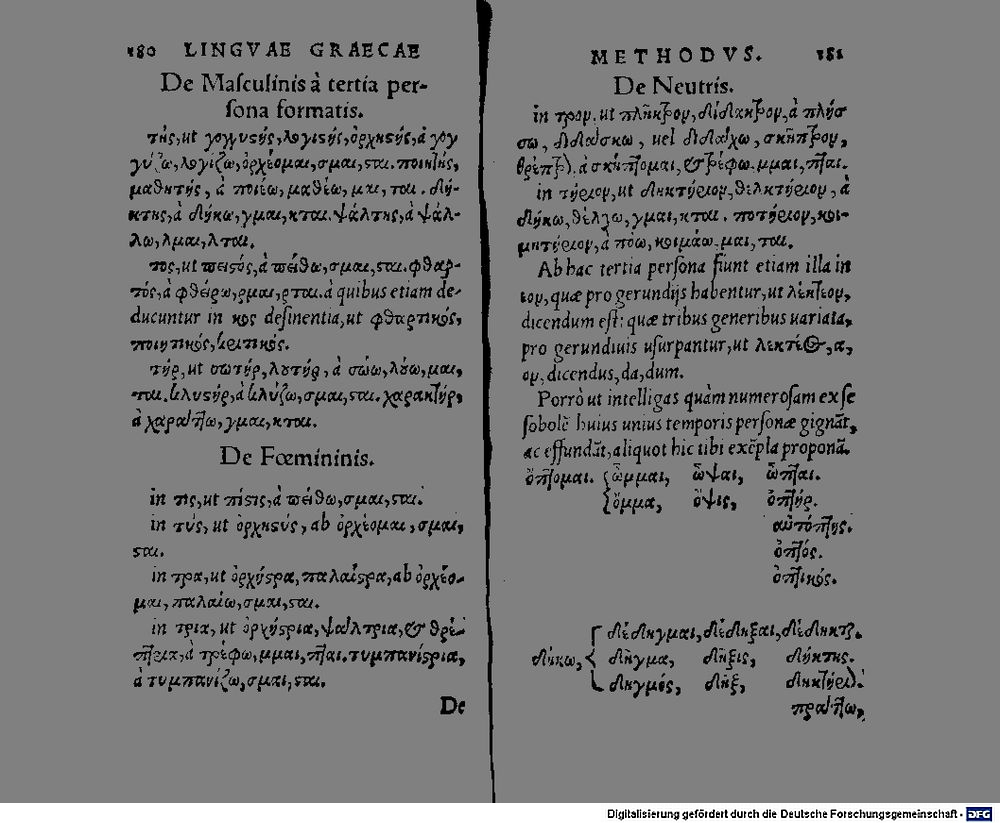 180 LINGVAE GRAECAE
De Maſculinis à tertia per-
ſona formatis.
της, ut γογγυςής, λογιςής, ὀρχηςής, à γογ
γύζω, λογίζω, ὀρχέομαι, σμαι, ςαι. ποιητής,
μαθητής, à ποιέω, μαθέω, μαι, ται. δή-
κτης, à δήκω, γμαι, κται. ψάλτης, à ψάλ-
λω, λμαι, λται.
τος, ut πειςός, à πείθω, σμαι, ςαι. φθαρ-
τός, à φθείρω, ρμαι, ρται. à quibus etiam de-
ducuntur in κος deſinentia, ut φθαρτικός,
ποιητικός, κριτικός.
τήρ, ut σωτήρ, λυτήρ, à σώω, λύω, μαι,
ται. κλυςήρ, à κλύζω, σμαι, ςαι. χαρακτήρ,
à χαράττω, γμαι, κται.
De Fœmininis.
in τις, ut πίςις, à πείθω, σμαι, ςαι.
in τύς, ut ὀρχηςύς, ab ὀρχέομαι, σμαι,
ςαι.
in τρα, ut ὀρχήςρα, παλαίςρα, ab ὀρχέο-
μαι, παλαίω, σμαι, ςαι.
in τρια, ut ὀρχήςρια, ψάλτρια, & θρέ-
πτρια, à τρέφω, μμαι, πται. τυμπανίςρια,
à τυμπανίζω, σμαι, ςαι.
De
METHODVS. 181
De Neutris.
in τρον, ut πλῆκτρον, δίδακτρον, à πλήσ
σω, διδάσκω, uel διδάχω, σκῆπτρον,
θρέπτρον. à σκήπτομαι, & τρέφω. μμαι, πται.
in τήριον, ut δηκτήριον, θελκτήριον, à
δήκω, θέλγω, γμαι, κται. ποτήριον, κοι-
μητήριον, à πόω, κοιμάω. μαι, ται.
Ab hac tertia perſona fiunt etiam illa in
εον, quæ pro gerundijs habentur, ut λεκτέον,
dicendum eſt: quæ tribus generibus uariata,
pro gerundiuis uſurpantur, ut λεκτέος, α,
ον, dicendus, da, dum.
Porrò ut intelligas quàm numeroſam ex ſe
ſobolẽ huius unius temporis perſonæ gignãt,
ac effundãt, aliquot hic tibi exẽpla proponã.
ὄπτομαι. ὦμμαι, ὦψαι, ὦπται.
ὄμμα, ὄψις, ὀπτήρ.
αὐτόπτης.
ὀπτός.
ὀπτικός.
δέδηγμαι, δέδηξαι, δέδηκται.
δήκω, δῆγμα, δῆξις, δήκτης.
δηγμός, δήξ, δηκτήριον.
πράττω,
Digitalisierung gefördert durch die Deutsche Forschungsgemeinschaft - DFG